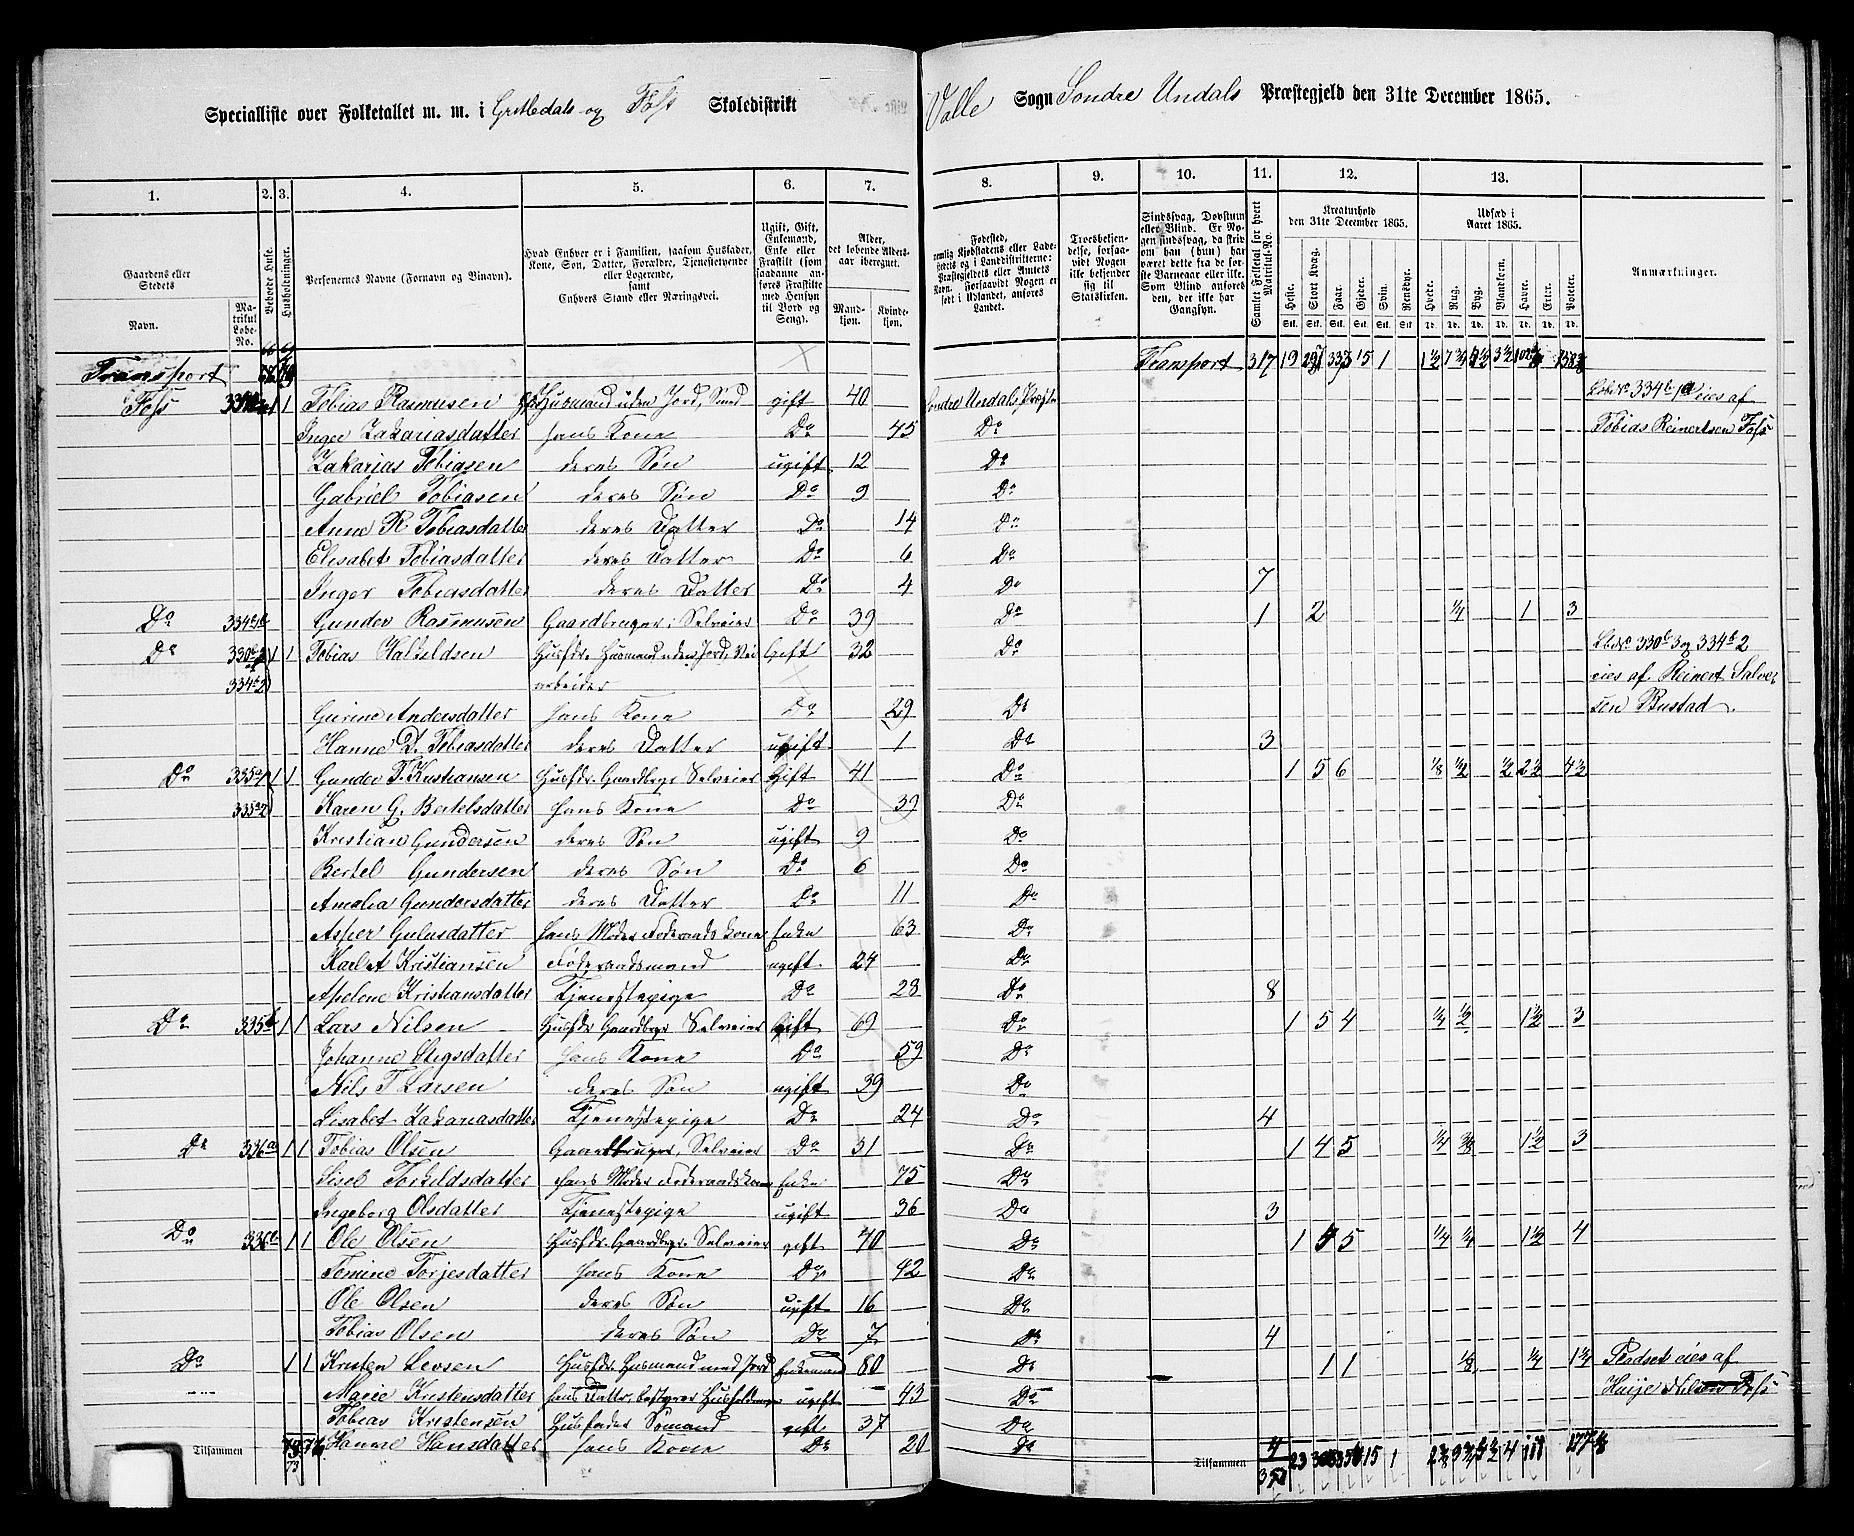 Specialliste over Folketallet m. m. i Grisledals og Foss Skoledistrikt
Valle Sogn Søndre Undals Præstegjeld den 31te December 1865.
1. 2. 3. 4. 5. 6. 7. 8. 9. 10. 11. 12. 13.
Gaardens eller Stedets Navn.
Matrikul Løbe-No.
Beboede Huse.
Husholdninger.
Personernes Navne (Fornavn og Binavn).
Hvad Enhver er i Familien, saasom Husfader, Kone, Søn, Datter, Forældre, Tjenestetyende eller Logerende, samt Enhvers Stand eller Næringsvei.
Ugift, Gift, Enkemand, Enke eller Fraskilt (som saadanne anføres Fraskilte med Hensyn til Bord og Seng).
Alder, det løbende Aldersaar iberegnet.
Mandkjøn. Kvindekjøn.
Fødested,
Troesbekjendelse, forsaavidt Nogen ikke bekjender sig til Statskirken.
Sindssvag, Døvstum eller Blind.
Samlet Folketal for hvert Matrikul-No.
Kreaturhold den 31te December 1865.
Heste. Stort Kvæg. Faar. Gjeder. Svin. Rensdyr.
Udsæd i Aaret 1865.
Hvede. Rug. Byg. Blandkorn. Havre. Erter. Poteter.
Anmærkninger.
Transport Transport 317 19 15 1
Foss 1 1 Tobias Rasmusen Husmand uden Jord, Smed gift 40 Søndre Undals Præst
Inger Zakariasdatter hans Kone Do 45 Do Tobias Reinertsen Foss
Zakarias Tobiasen deres Søn ugift 12 Do
Gabriel Tobiasen deres Søn Do 9 Do
Anne R Tobiasdatter deres Datter Do 14 Do
Elisabet Tobiasdatter deres Datter Do 6 Do
Inger Tobiasdatter deres Datter Do 4 Do 7
Do Gunder Rasmusen Gaardbruger, Selveier Do 39 Do 1 2 1/4 1 3
Do 1 1 Tobias Husfdr. Husmand uden Jord, Vei Gift 32 Do Lbno 330b 3 og 334b 2
334b2 arbeider eies af Reinert Salve
Gurine Andersdatter hans Kone Do 29 Do sen Bustad
Hanne T. Tobiasdatter deres Datter ugift 1 Do 3
Do 335a1 1 1 Gunder T. Kristiansen Husfdr. Gaardbrgr Selveier Gift 41 Do 1 5 6 1/8 1/2 1/2 2 1/2 4 1/2
335a2 Karen G. Bertelsdatter hans Kone Do 39 Do
Kristian Gundersen deres Søn ugift 9 Do
Bertel Gundersen deres Søn Do 6 Do
Amalia Gundersdatter deres Datter Do 11 Do
Asper Gulusdatter hans Moder Føderaads Kone Enke 63 Do
Karl A Kristiansen Føderaadsmand ugift 24 Do
Kristiansdatter Tjenestepige Do 28 Do 8
Do 335b 1 1 Lars Nilsen Husfdr Gaardbrgr Selveier Gift 69 Do 1 5 4 1/4 1/2 1 1/2 3
Johanne Stigsdatter hans Kone Do 59 Do
Nils T Larsen deres Søn ugift 39 Do
Lisabet Zakariasdatter Tjenestepige Do 24 Do 4
Do 336a 1 1 Tobias Olsen Gaardbruger, Selveier Do 31 Do 1 4 5 1/4 3/8 1 1/2 3
Liseb Torkildsdatter hans Moder Føderaadskone Enke 75 Do
Ingeborg Olsdatter Tjenestepige ugift 36 Do 3
Do 336b 1 1 Ole Olsen Husfdr. Gaardbrgr. Selveier gift 40 Do 1 5 5 1/4 1/4 1 1/2 4
Temine Torjesdatter hans Kone Do 42 Do
Ole Olsen deres Søn ugift 16 Do
Tobias Olsen deres Søn Do 7 Do 4
Do 1 1 Kristen Levsen Husfdr. Husmand med Jord Enkemand 80 Do 1 1 1/8 1/4 1 1/4 Pladsen eies af
Marie Kristensdatter hans Dattr. bestyrer Husholdningen ugift 43 Do
Tobias Kristensen Husfader Sømand gift 37 Do
Tilsammen Hanne Hansdatter hans Kone Do 20 Do 4
Tilsammen 23 15 1